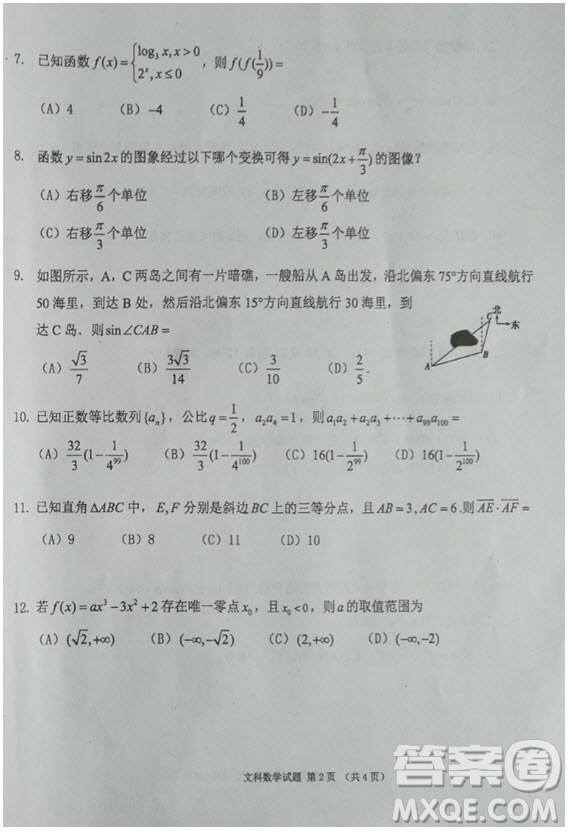 7. 已知函数 f(x)={log₃x, x>0; 2ˣ, x≤0}, 则 f(f(1/9))=
(A) 4 (B) -4 (C) 1/4 (D) -1/4
8. 函数 y=sin2x 的图象经过以下哪个变换可得 y=sin(2x+π/3) 的图像?
(A) 右移π/6个单位 (B) 左移π/6个单位
(C) 右移π/3个单位 (D) 左移π/3个单位
9. 如图所示，A，C 两岛之间有一片暗礁，一艘船从 A 岛出发，沿北偏东 75°方向直线航行
50 海里，到达 B 处，然后沿北偏东 15°方向直线航行 30 海里，到
达 C 岛．则 sin∠CAB=
北
东
C
A
B
(A) √3/7 (B) 3√3/14 (C) 3/10 (D) 2/5.
10. 已知正数等比数列{aₙ}，公比 q=1/2，a₂a₄=1，则 a₁a₂+a₂a₃+⋯+a₉₉a₁₀₀=
(A) 32/3(1-1/4⁹⁹) (B) 32/3(1-1/4¹⁰⁰) (C) 16(1-1/2⁹⁹) (D) 16(1-1/2¹⁰⁰)
11. 已知直角 ΔABC 中，E,F 分别是斜边 BC 上的三等分点，且 AB=3,AC=6.则 AE·AF=
(A) 9 (B) 8 (C) 11 (D) 10
12. 若 f(x)=ax³-3x²+2 存在唯一零点 x₀，且 x₀<0，则 a 的取值范围为
(A) (√2,+∞) (B) (-∞,-√2) (C) (2,+∞) (D) (-∞,-2)
文科数学试题 第 2 页 （共 4 页）
答案圈
MXQE.COM